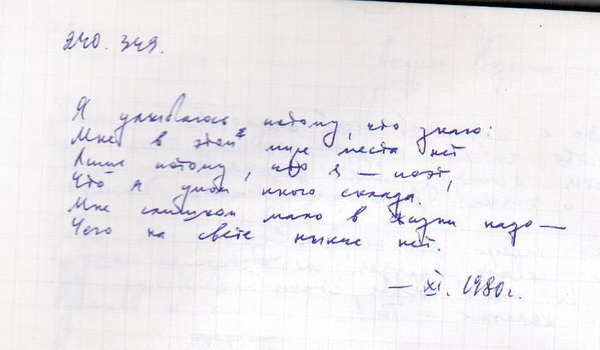 240. 349.
Я улыбаюсь потому, что знаю:
Мне в этом мире места нет
Лишь потому, что я — поэт,
Что я умом иного склада.
Мне слишком мало в жизни надо —
Чего на свете ныне нет.
— XI. 1980 г.